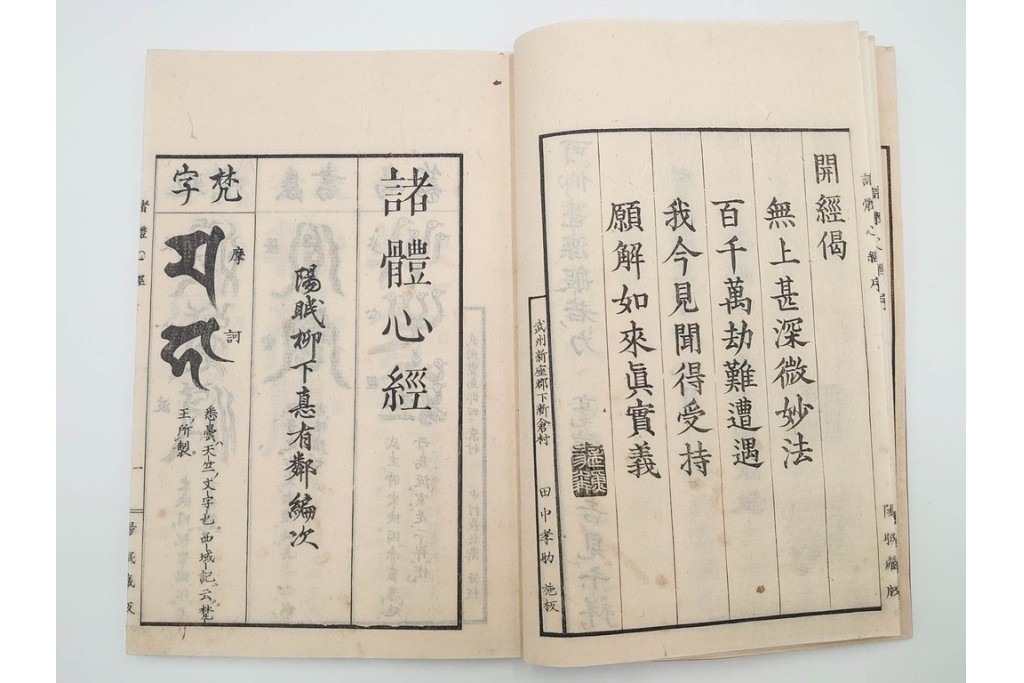 開經偈
無上甚深微妙法
百千萬劫難遭遇
我今見聞得受持
願解如來眞實義
武州新座郡下新倉村
田中孝助 施板
諸體心經
陽眠柳下悳有鄰編次
梵字
摩
訶
悉曇ハ天竺ノ文字也。西域記ニ云。梵
王ノ所製。
諸體心經
一